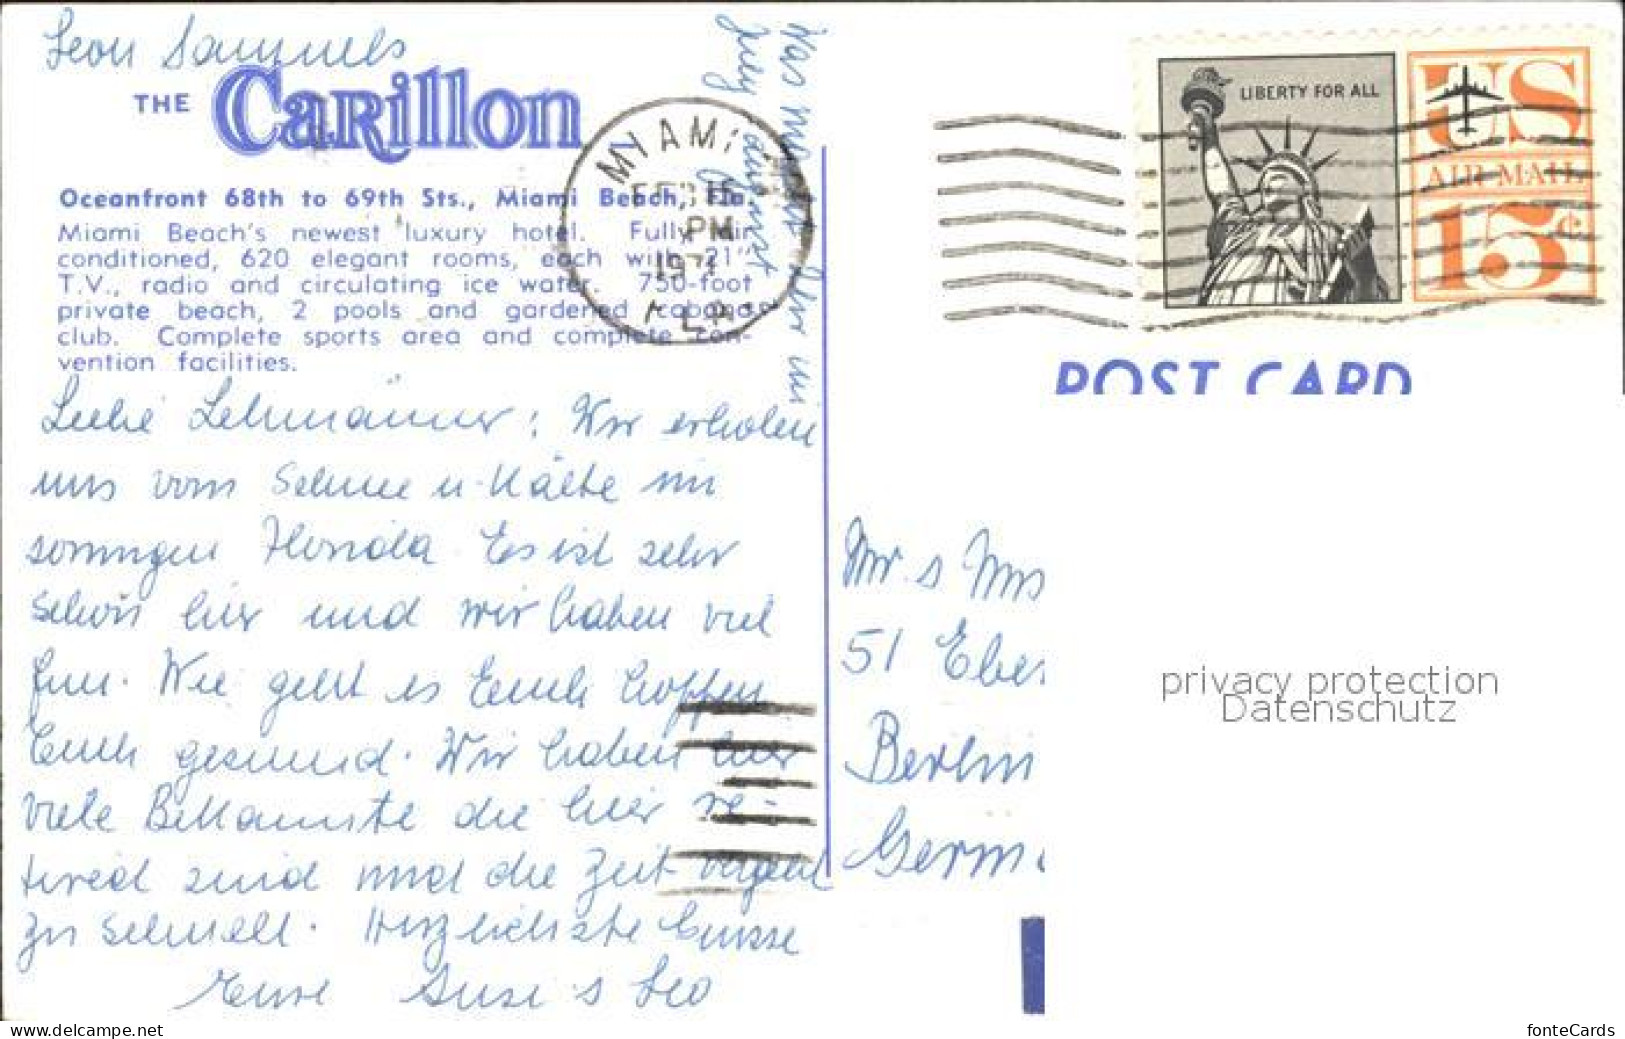 Leon Samuels
THE Carillon
Oceanfront 68th to 69th Sts., Miami Beach, Fla.
Miami Beach's newest luxury hotel. Fully air
conditioned, 620 elegant rooms, each with 21"
T.V., radio and circulating ice water. 750-foot
private beach, 2 pools and gardened cabanas
club. Complete sports area and complete con-
vention facilities.
Liebe Lehmänner: Wir erholen
uns vom Schnee u. Kälte im
sonnigen Florida. Es ist sehr
schön hier und wir haben viel
Fun. Wie geht es Euch hoffen
Euch gesund. Wir haben hier
viele Bekannte die hier re-
tired sind und die Zeit vergeht
zu schnell. Herzlichste Grüsse
Eure Susi & Leo
Was macht Ihr im
MIAMI
FEB 15
PM
197
FLA
LIBERTY FOR ALL
US
AIR MAIL
15¢
POST CARD
Mr & Mrs
51 Eber
Berlin
Germa
privacy protection
Datenschutz
www.delcampe.net
fonteCards